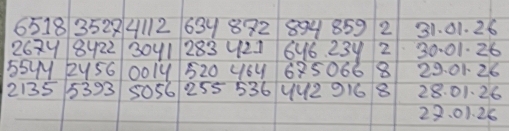 6518 3527 4112 634 872 894 859 2 31.01.26
2674 8422 3041 283 421 646 234 2 30.01.26
5544 2456 0014 520 464 675 066 8 29.01.26
2135 5393 5056 255 536 442 916 8 28.01.26
27.01.26